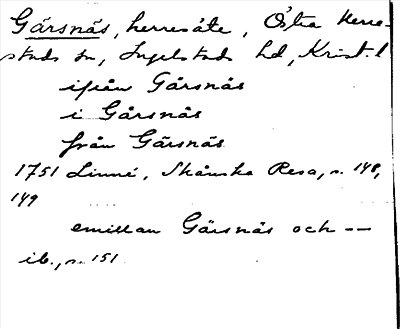 Gärsnäs, herresäte, Ö̈stra Herre-
stads sn, Ingelstads hd, Krist. l
ifrån Gärsnäs
i Gärsnäs
från Gärsnäs
1751 Linné, Skånska Resa, s. 148,
149
emillan Gärsnäs och --
ib., s. 151